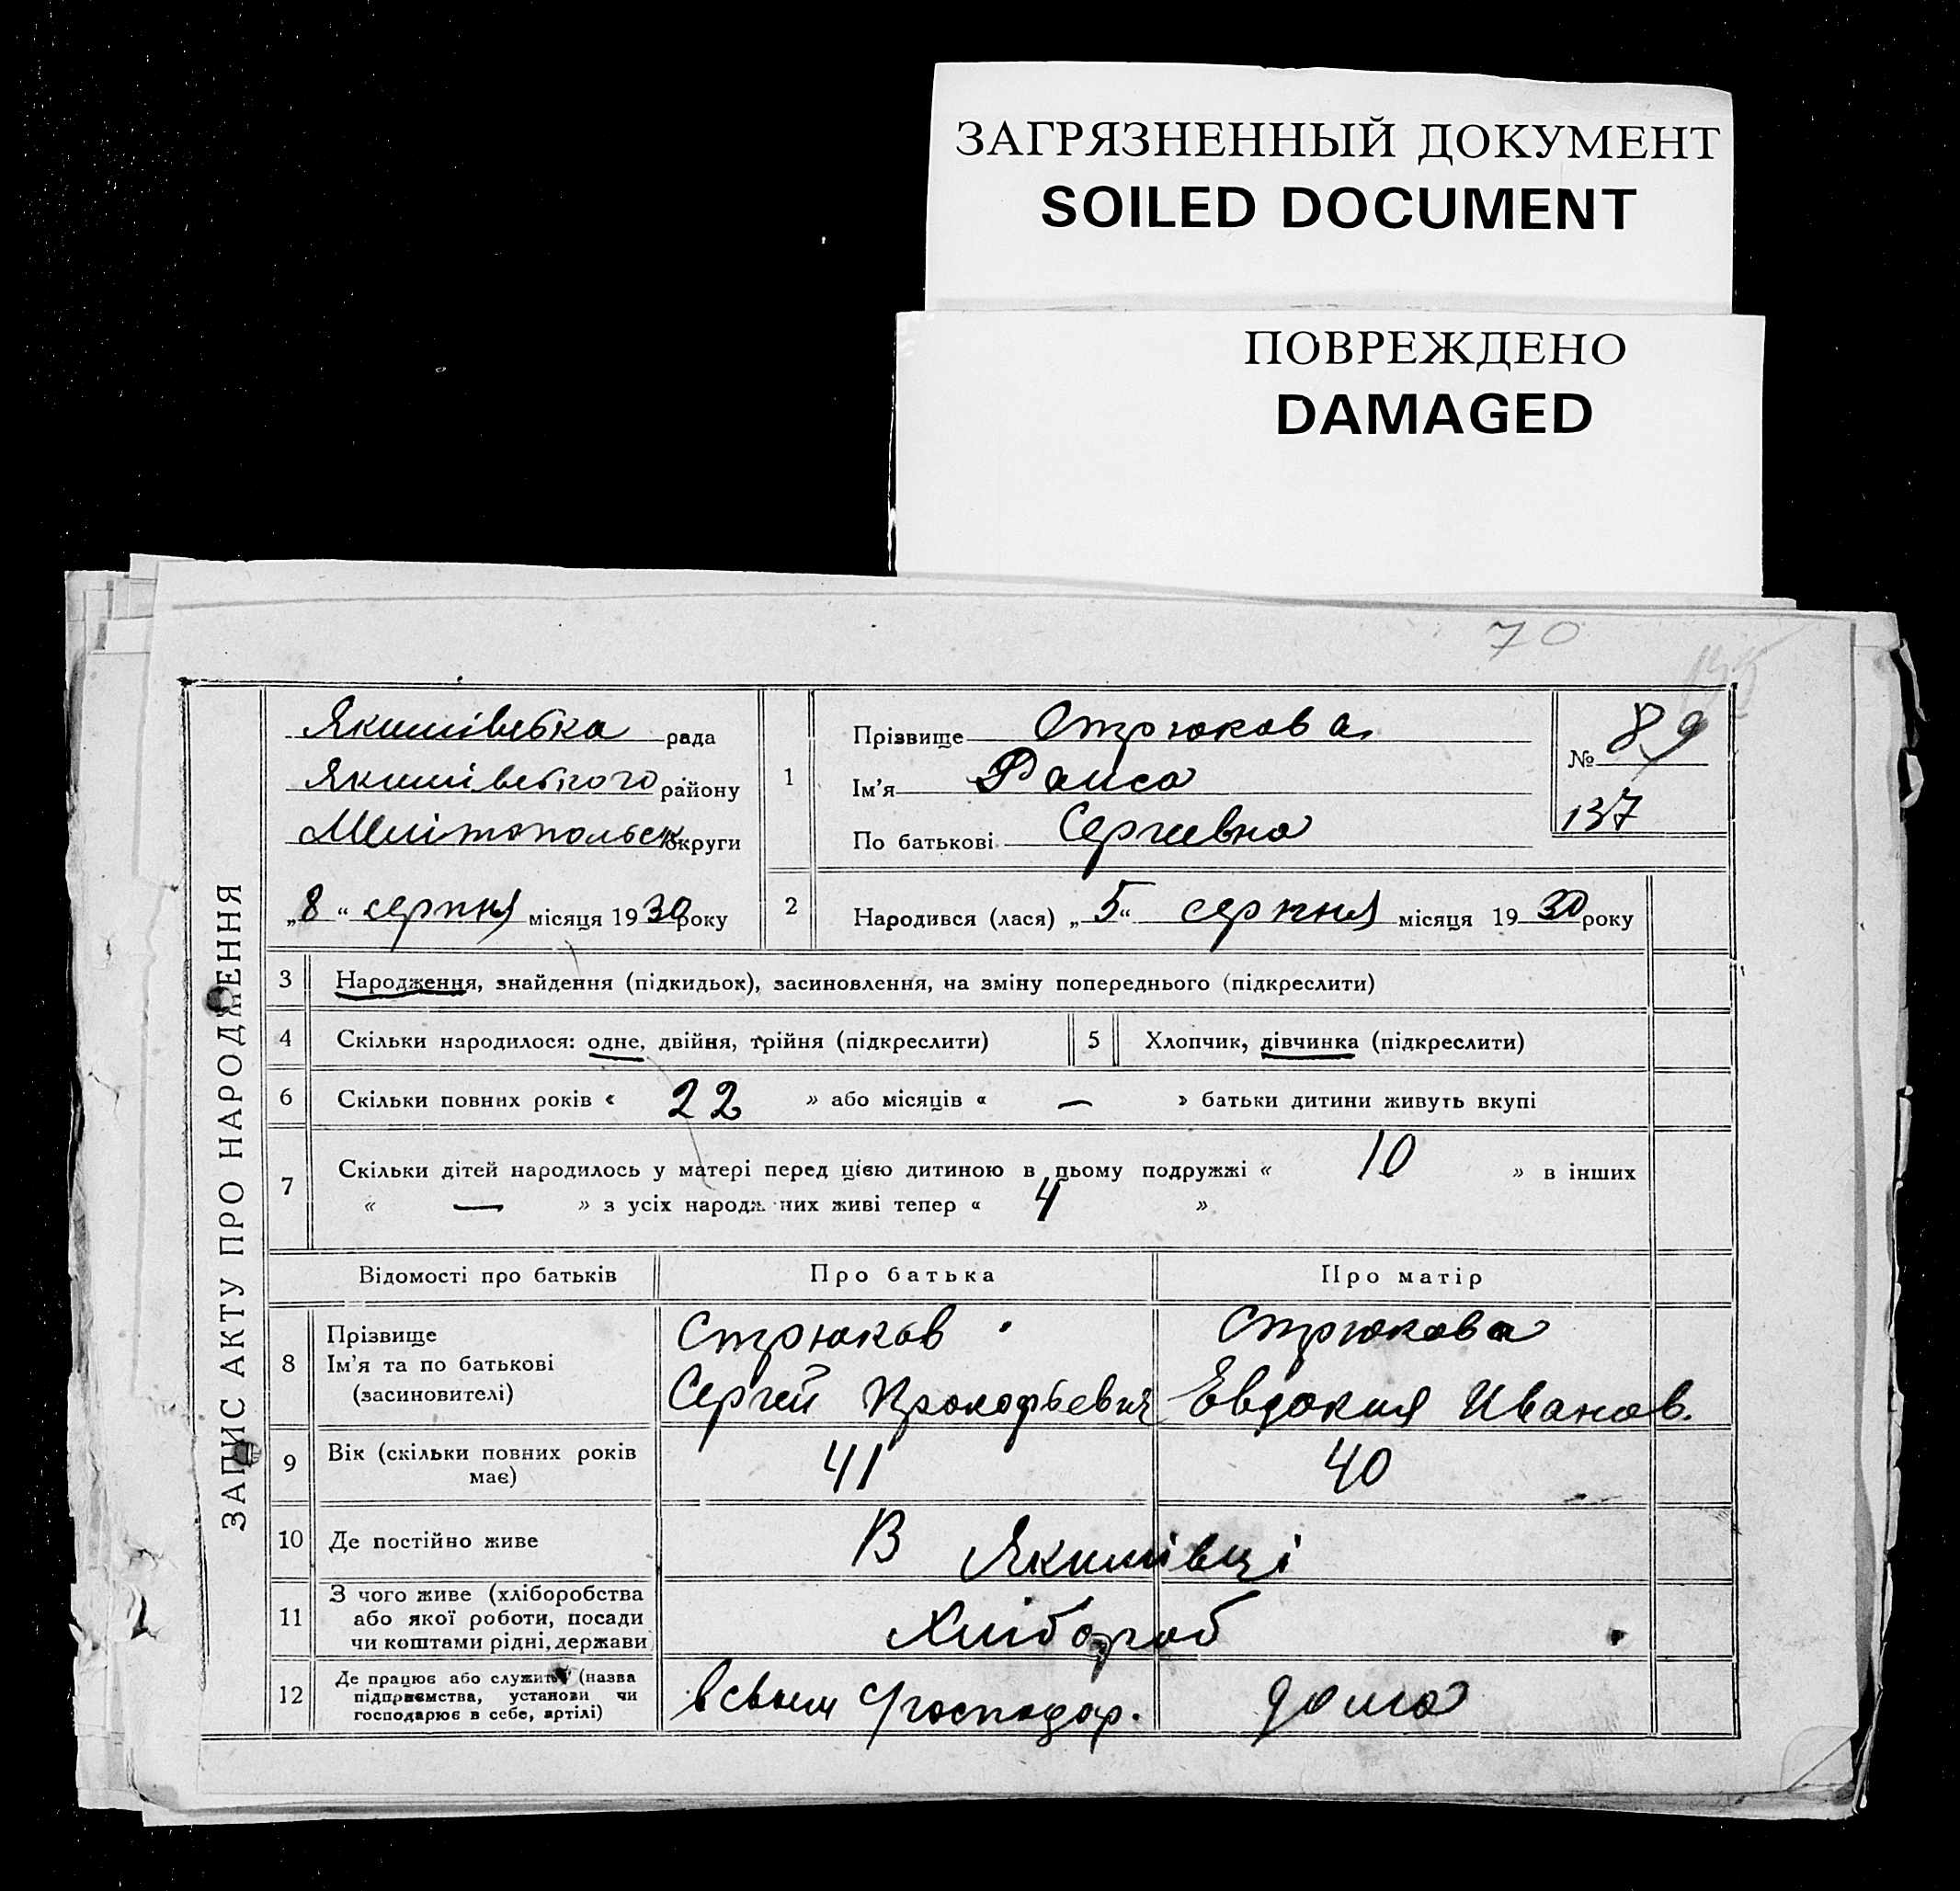 ЗАГРЯЗНЕННЫЙ ДОКУМЕНТ
SOILED DOCUMENT
ПОВРЕЖДЕНО
DAMAGED
70
ЗАПИС АКТУ ПРО НАРОДЖЕННЯ
Якимівська рада
Якимівського району
Мелітопольськ округи
„8“ серпня місяця 1930 року
1
Прізвище Стрюкова
Ім’я Раиса
По батькові Сергеевна
№ 89
137
2
Народився (лася) „5“ серпня місяця 1930 року
3 Народження, знайдення (підкидьок), засиновлення, на зміну попереднього (підкреслити)
4 Скільки народилося: одне, двійня, трійня (підкреслити) 5 Хлопчик, дівчинка (підкреслити)
6 Скільки повних років « 22 » або місяців « — » батьки дитини живуть вкупі
7 Скільки дітей народилось у матері перед цією дитиною в цьому подружжі « 10 » в інших
« — » з усіх народж них живі тепер « 4 »
Відомості про батьків Про батька Про матір
8 Прізвище Стрюков Стрюкова
Ім’я та по батькові Сергей Прокофьевич Евдокия Иванов.
(засиновителі)
9 Вік (скільки повних років 41 40
має)
10 Де постійно живе В Якимівці
11 З чого живе (хліборобства
або якої роботи, посади Хлібороб
чи коштами рідні, держави
12 Де працює або служить (назва
підприємства, установи чи в своем господар. дома
господарює в себе, артілі)